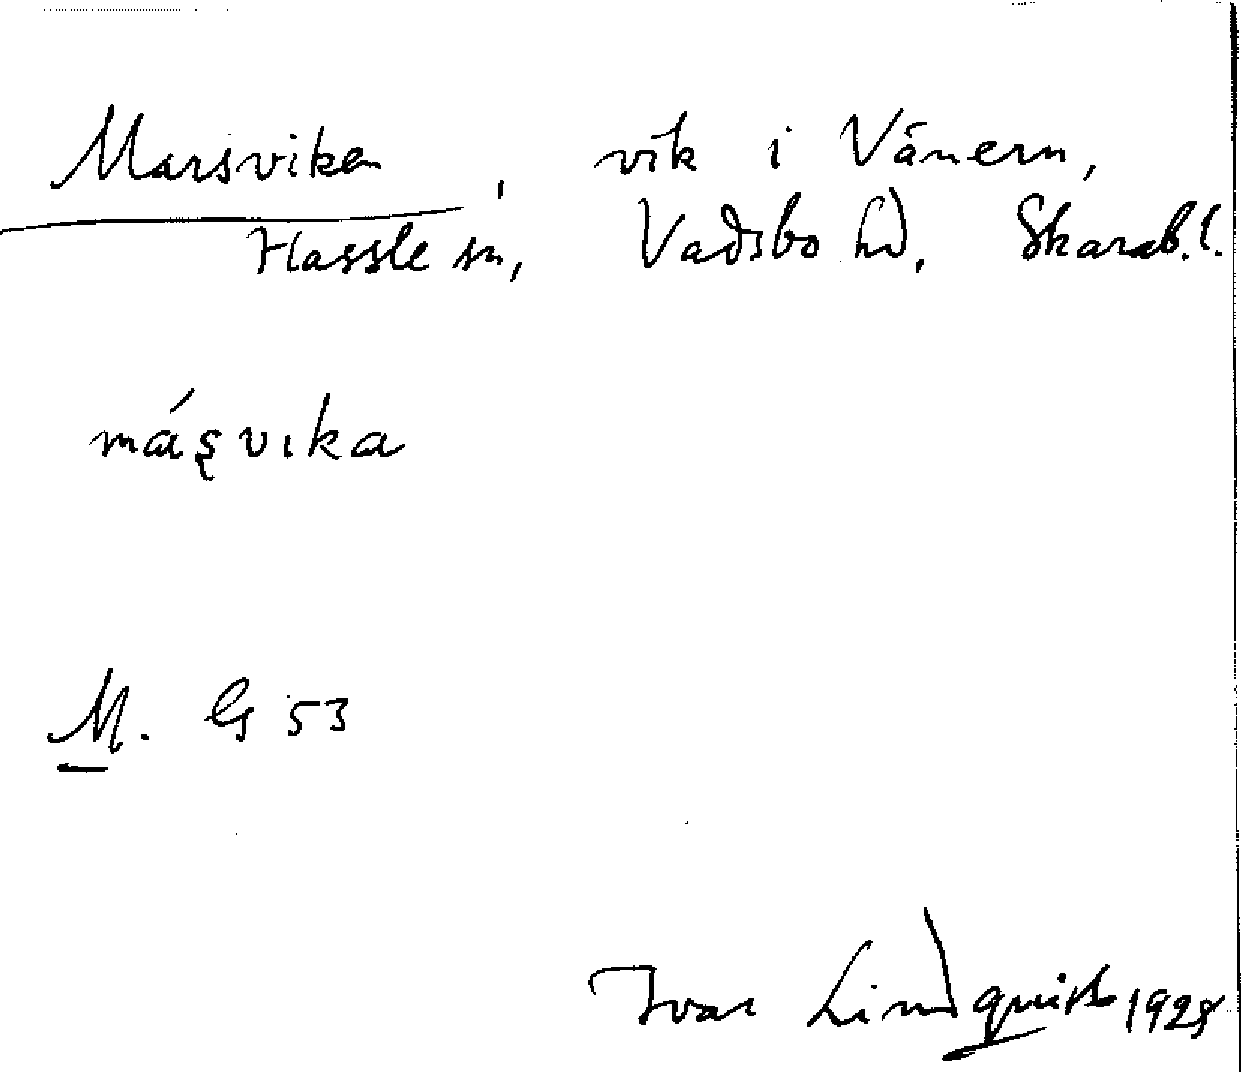 Marsviken, vik i Vänern,
Hassle sn, Vadsbo hd, Skarab.l.
má𝑠̨vika
M. G 53
Ivar Lindquist 1928